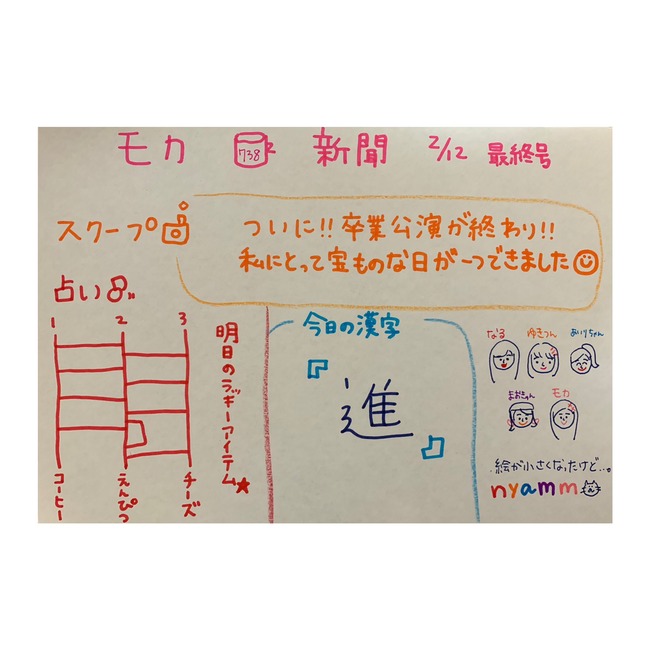 モカ 738 新聞 2/12 最終号
スクープ
ついに!! 卒業公演が終わり!!
私にとって宝ものな日が一つできました
占い
1 2 3
コーヒー
えんぴつ
チーズ
明日のラッキーアイテム
今日の漢字
『進』
なる ゆきつん あいりちゃん
よおきゃん モカ
絵が小さくなったけど...。
nyamm